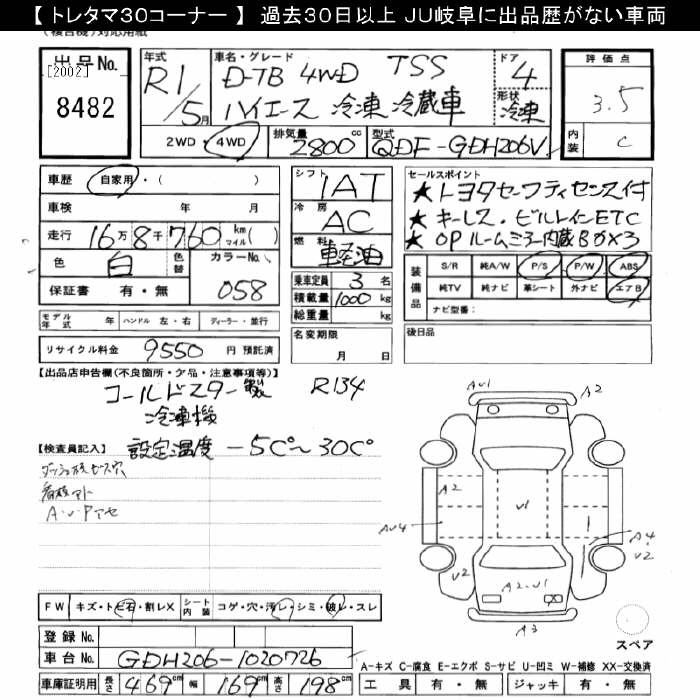 【 トレタマ30コーナー 】 過去30日以上 JU岐阜に出品歴がない車両
(複合機)対応用紙
出品No. [2002] 8482
年式 R1/5月
車名・グレード D-TB 4WD TSS
ハイエース 冷凍冷蔵車
ドア 4
形状 冷凍
評価点 3.5
内装 C
2WD・4WD 排気量 2800cc 型式 QDF-GDH206V
車歴 自家用・( )
車検 年 月
走行 16万8千760 km マイル( )
色 白 色替 カラーNo. 058
保証書 有・無
モデル年式 年 ハンドル 左・右 ディーラー・並行
リサイクル料金 9550 円 預託済
シフト IAT
冷房 AC
燃料 軽油
乗車定員 3 名
積載量 1000 kg
総重量 kg
名変期限 月 日
セールスポイント
★トヨタセーフティセンス付
★キーレス・ビルトインETC
★OPルームミラー内蔵Bカメ×3
装備品 S/R 純A/W P/S P/W ABS
純TV 純ナビ 革シート 外ナビ エアB
ナビ型番:
後日品
【出品店申告欄(不良箇所・欠品・注意事項等)】
コールドスター製 R134
冷凍機
設定温度 -5C°~30C°
【検査員記入】
A・U・Pアセ
AU1
A2
A2
U1
AU4
A4
U2
U2
A2・U1
A3
スペア
FW キズ・トビ石・割レX シート内装 コゲ・穴・汚レ・シミ・破レ・スレ
登録 No.
車台 No. GDH206-1020726
車庫証明用 長さ 469cm 幅 169cm 高さ 198cm
A-キズ C-腐食 E-エクボ S-サビ U-凹ミ W-補修 XX-交換済
工具 有・無 ジャッキ 有・無